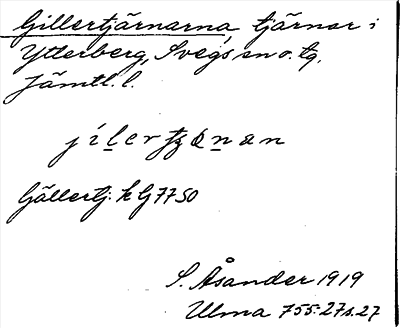 Gillertjärnarna tjärnar i
Ytterberg, Svegs sn o. tg,
Jämtl. l.
Gällertj: k G 7750
S. Åsander 1919
Ulma 755: 27 s. 27